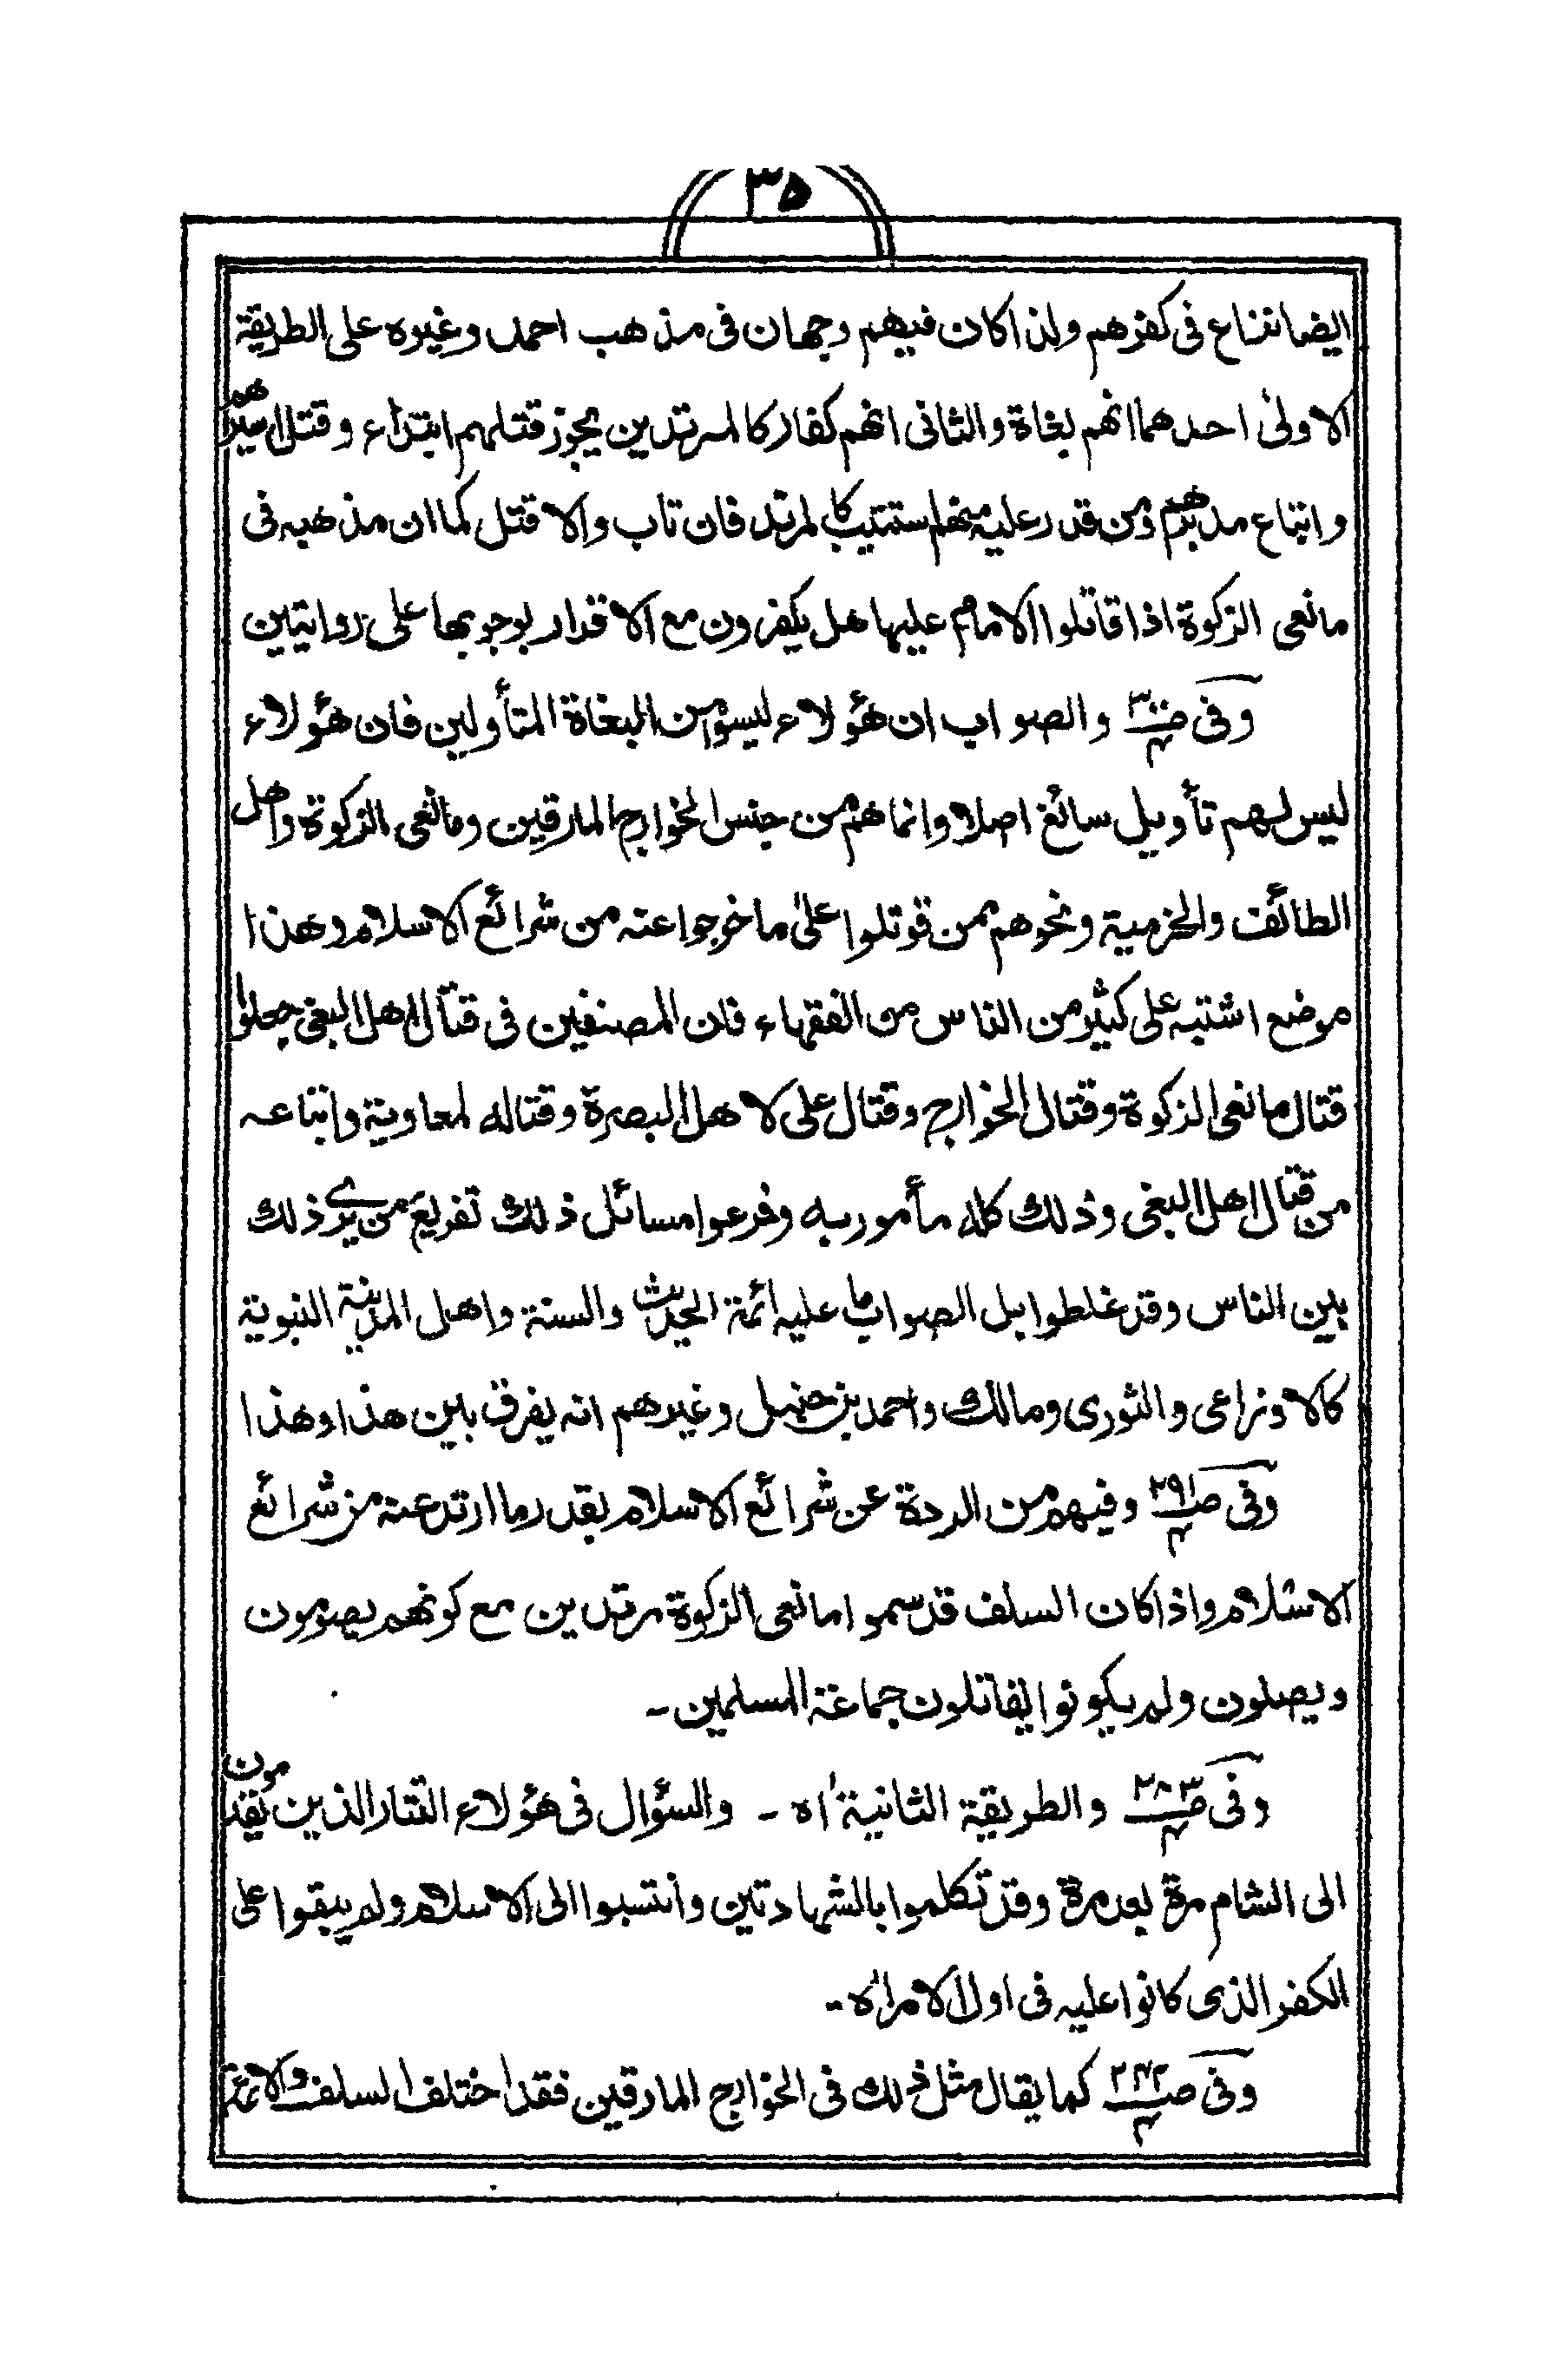 ۳۵
ايضا نزاع فى كفرهم ولذا كان فيهم وجهان فى مذهب احمد وغيره على الطريقة
الاولىٰ احدهما انهم بغاة والثانى انهم كفار كالمرتدين يجوز قتلهم ابتداء وقتل اسيرهم
واتباع مدبرهم ومن قدر عليه منهم استتيب كالمرتد فان تاب والا قتل كما ان مذهبه فى
مانعى الزكوة اذا قاتلوا الامام عليها هل يكفرون مع الاقرار بوجوبها على روايتين
وفى ص ۳۰۰ / ۴ والصواب ان هؤلاء ليسوا من البغاة المتأولين فان هؤلاء
ليس لهم تأويل سائغ اصلا وانما هم من جنس الخوارج المارقين ومانعى الزكوة واهل
الطائف والخرمية ونحوهم ممن قوتلوا علىٰ ما خرجوا عنه من شرائع الاسلام وهذا
موضع اشتبه على كثير من الناس من الفقهاء فان المصنفين فى قتال اهل البغى جعلوا
قتال مانعى الزكوة وقتال الخوارج وقتال على لاهل البصرة وقتاله لمعاوية واتباعه
من قتال اهل البغى وذلك كله مأمور به وفرعوا مسائل ذلك تفريع من يرے ذلك
بين الناس وقد غلطوا بل الصواب ما عليه ائمة الحديث والسنة واهل المدينة النبوية
كالاوزاعى والثورى ومالك واحمد بن حنبل وغيرهم انه يفرق بين هذا وهذا
وفى ص ۲۹۱ / ۴ وفيهم من الردة عن شرائع الاسلام بقدر ما ارتد عنه من شرائع
الاسلام واذا كان السلف قد سموا مانعى الزكوة مرتدين مع كونهم يصومون
ويصلون ولم يكونوا يقاتلون جماعة المسلمين ـ
وفى ص ۲۸۳ / ۴ والطريقة الثانية اه ـ والسؤال فى هؤلاء التتار الذين يقدمون
الى الشام مرة بعد مرة وقد تكلموا بالشهادتين وانتسبوا الى الاسلام ولم يبقوا على
الكفر الذى كانوا عليه فى اول الامر اه ـ
وفى ص ۲۴۲ / ۴ كما يقال مثل ذلك فى الخوارج المارقين فقد اختلف السلف والائمة